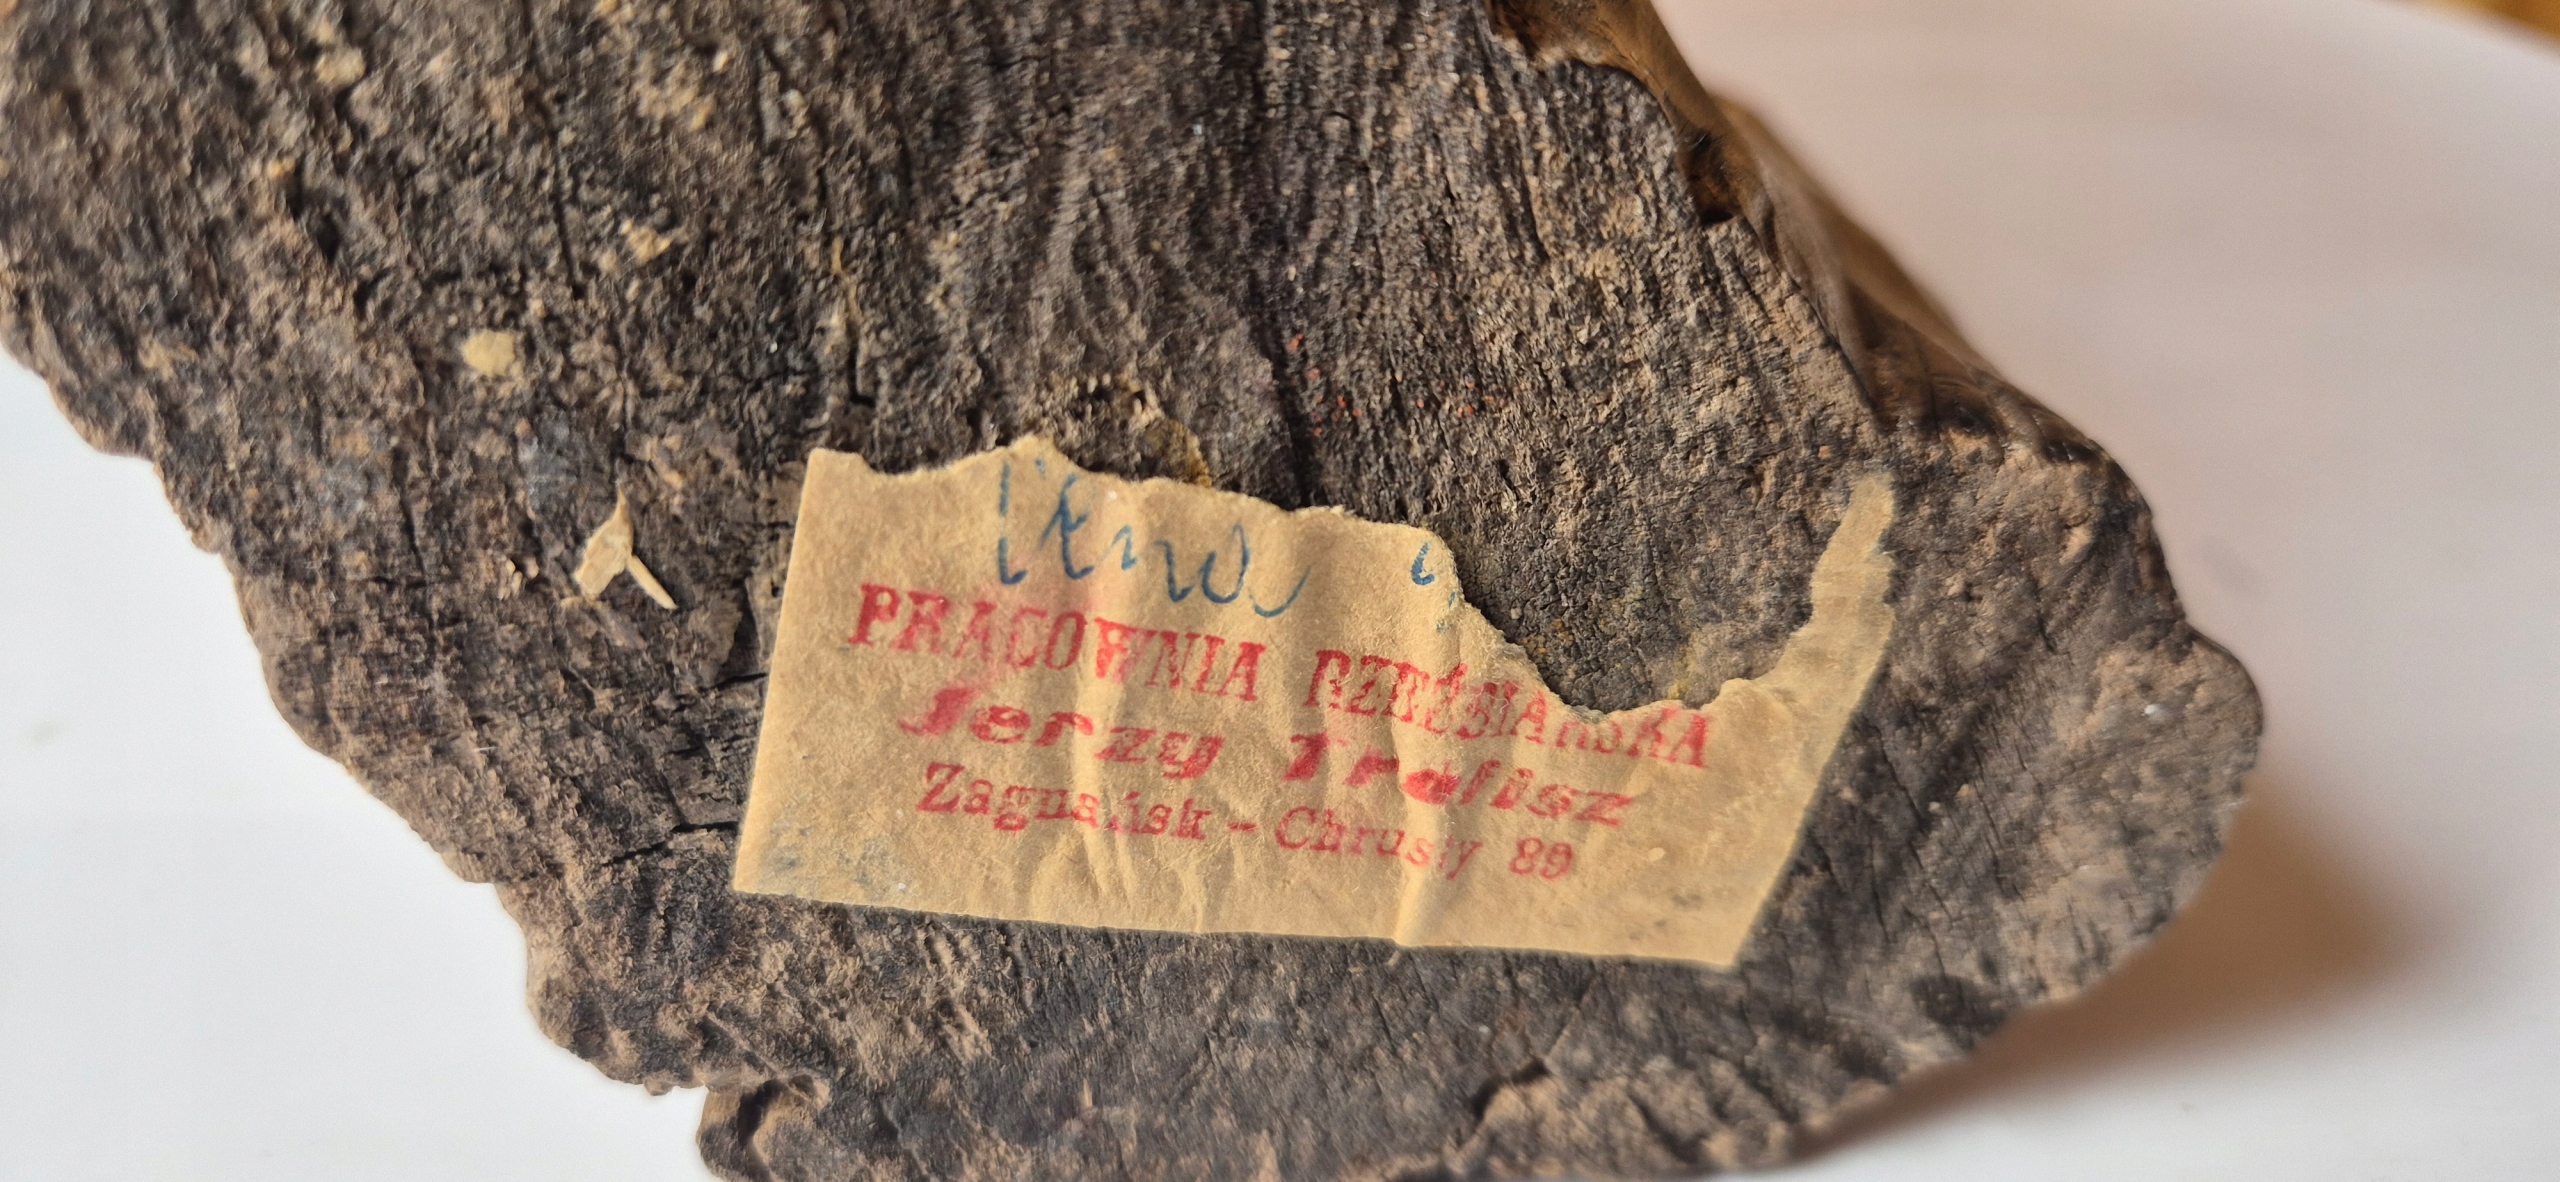 Cena
PRACOWNIA RZEŹBIARSKA
Jerzy Trafisz
Zagnańsk - Chrusty 89